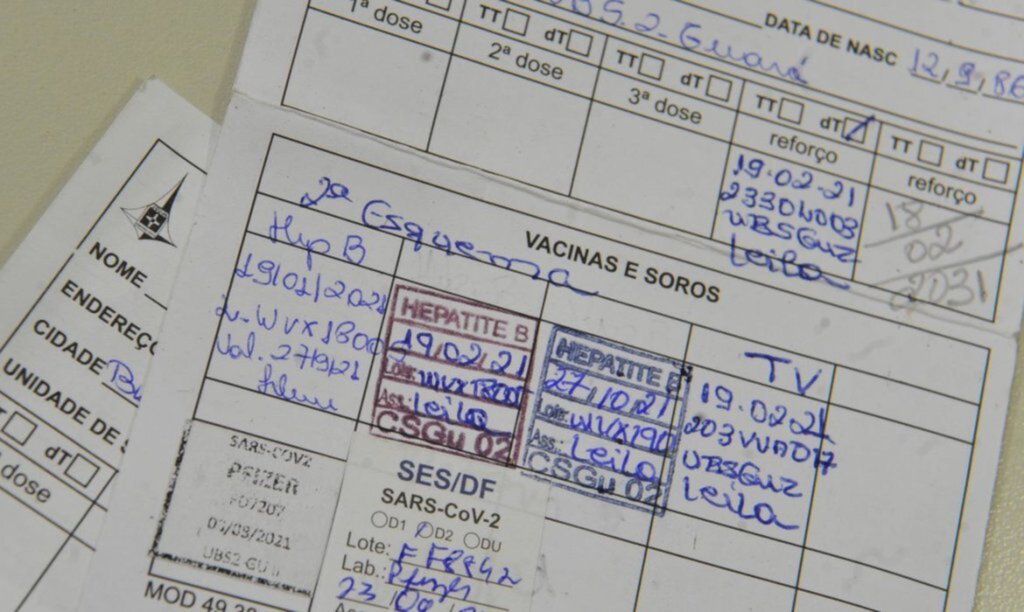 DATA DE NASC 12,9,86
2 - Guará
1ª dose
TT dT
2ª dose
TT dT
3ª dose
TT dT
reforço
TT dT
reforço
19.02.21
UBSGU2
Leila
18
02
2031
VACINAS E SOROS
2º Esquema
Hep B
19/01/2021
Val. 27/9/21
HEPATITE B
19,02,21
Lote:
Ass.: Leila
CSGu 02
HEPATITE B
27,10,21
Lote: WVX190
Ass.: Leila
CSGu 02
TV
19.02.21
UBSGU2
Leila
SARS-COV2
PFIZER
UBS2-GU
SES/DF
SARS-CoV-2
D1 D2 DU
Lote:
Lab.: Pfizer
MOD 49
NOME
ENDEREÇO
CIDADE
UNIDADE DE
dT
dose